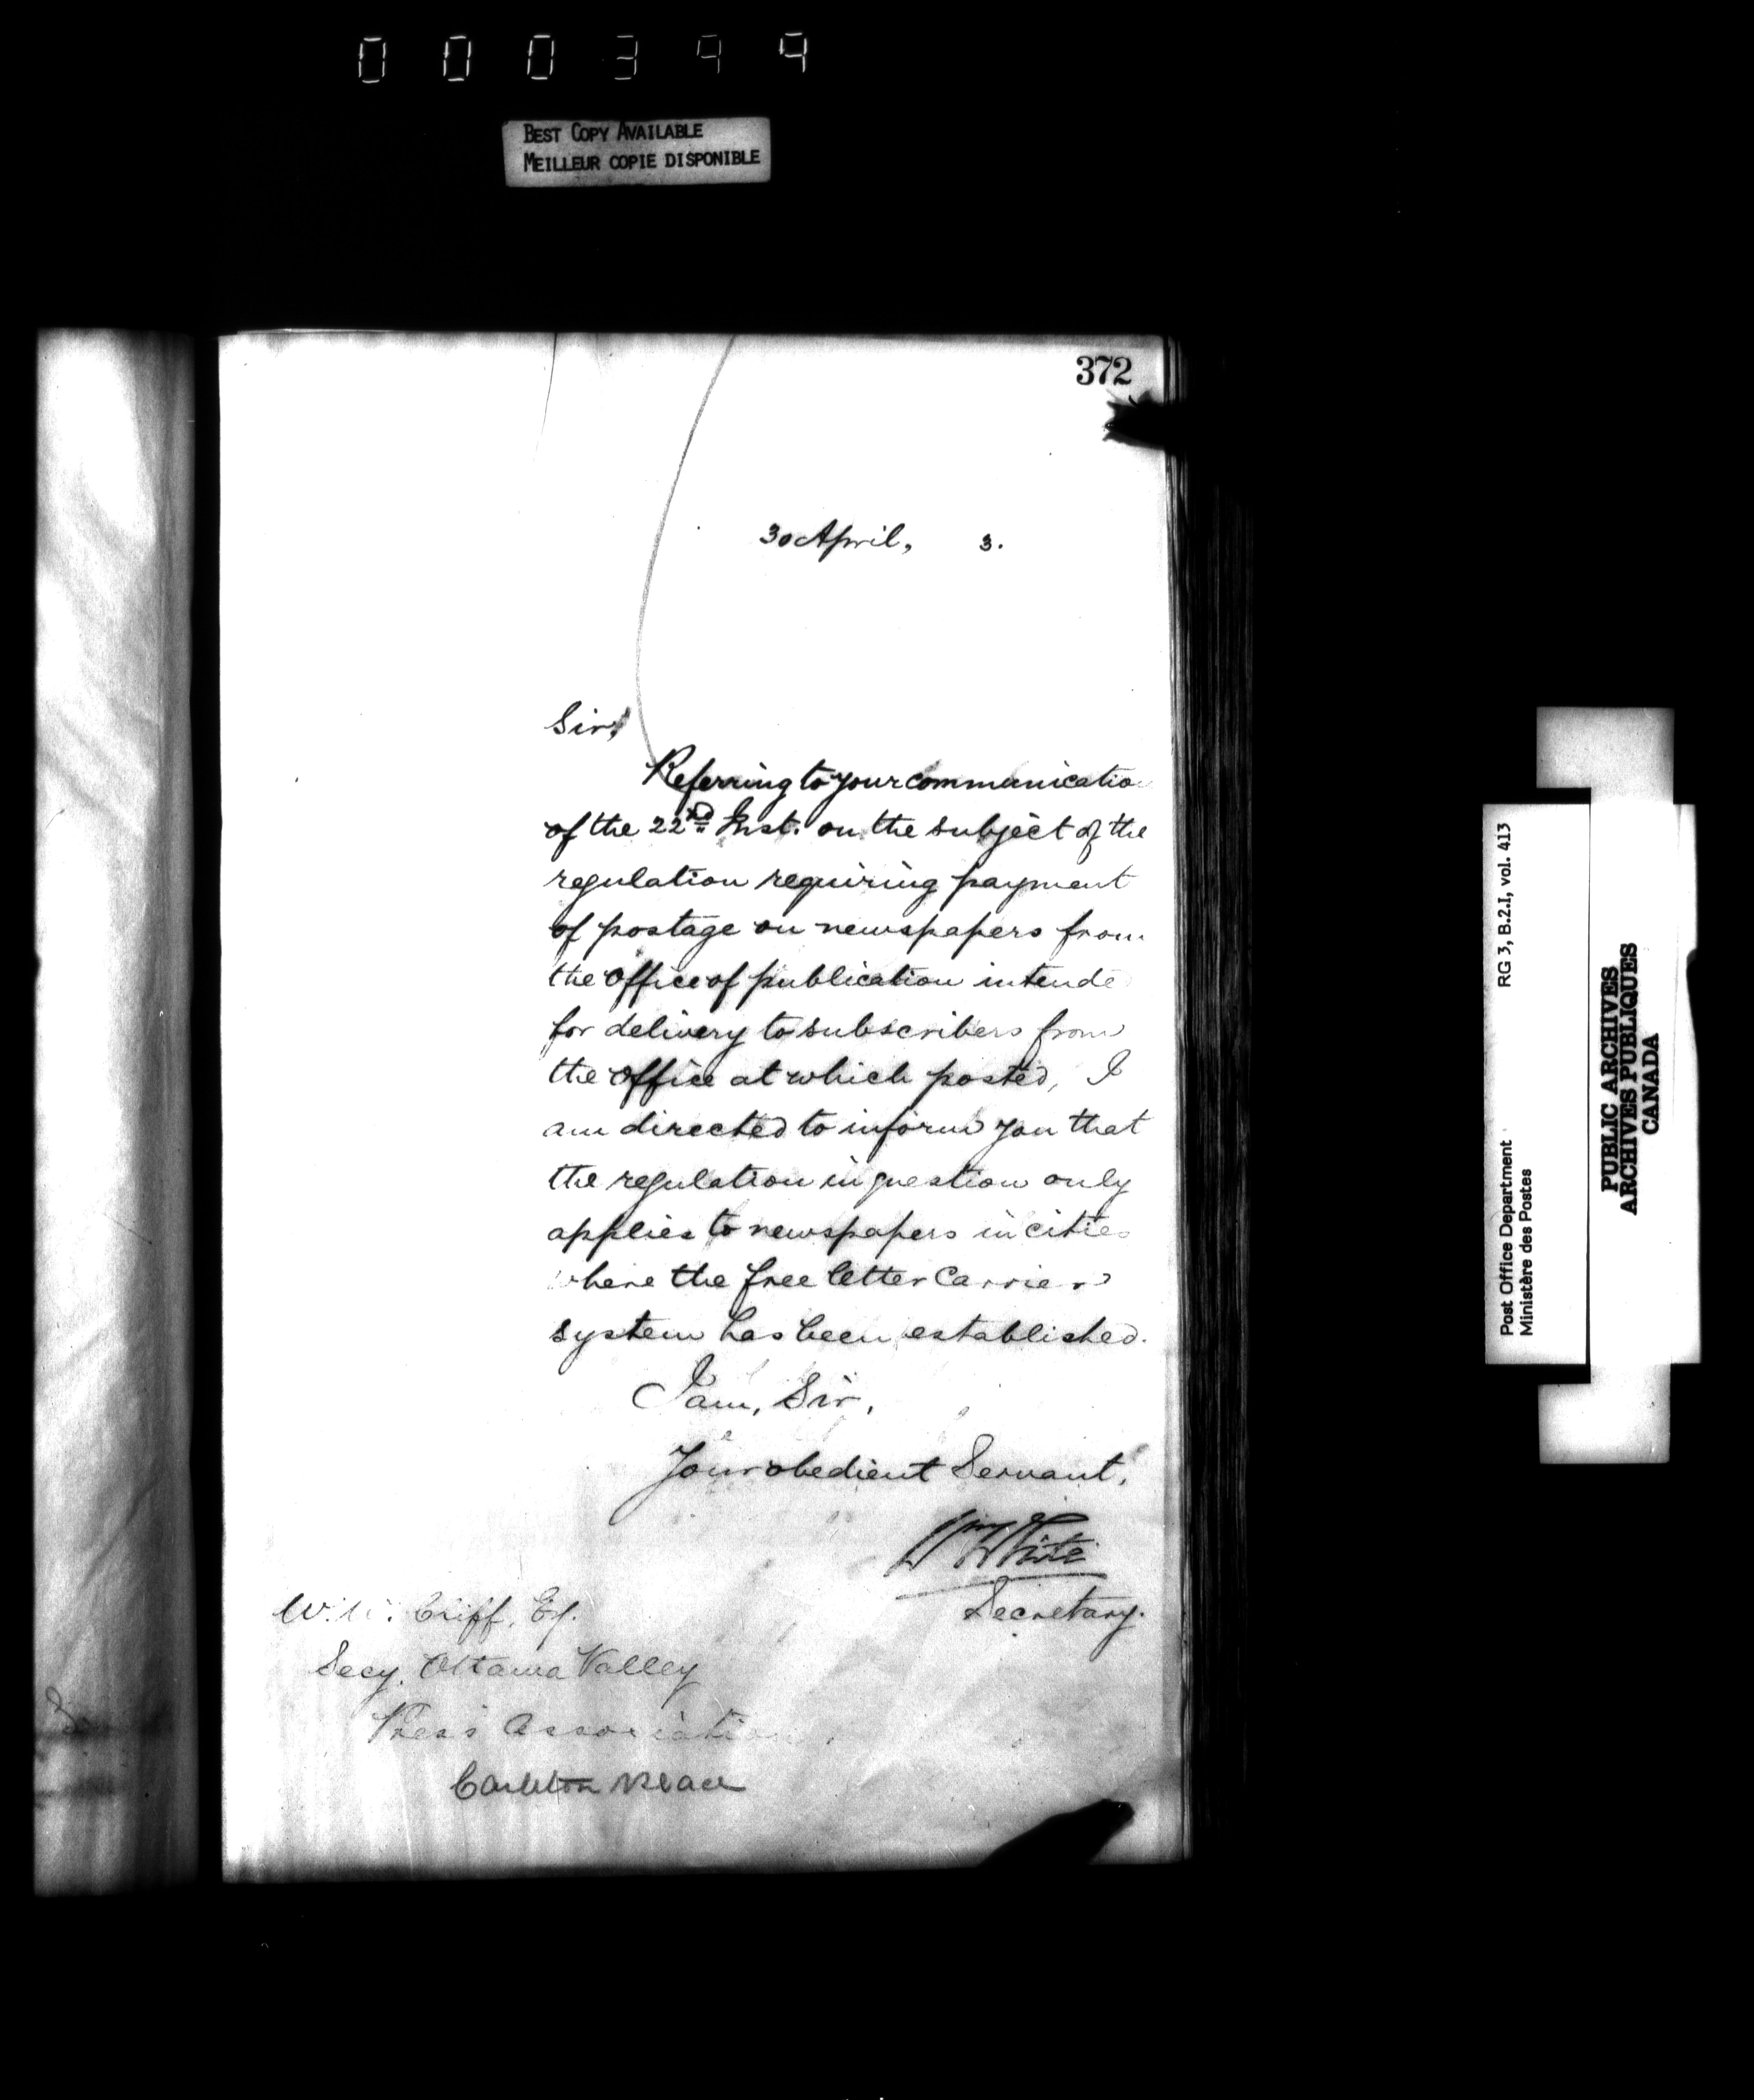 000344
BEST COPY AVAILABLE
MEILLEUR COPIE DISPONIBLE
372
30 April, 3.
Sir,
Referring to your communicatio
of the 22nd Inst. on the subject of the
regulation requiring payment
of postage on newspapers from
the office of publication intende
for delivery to subscribers from
the office at which posted, I
am directed to inform you that
the regulation in question only
applies to newspapers in cities
where the free letter Carrier
system has been established.
I am, Sir,
Your obedient Servant,
Wm White
Secretary.
W. W. Cliff, Esq.
Secy. Ottawa Valley
Press Association,
Carleton Place
RG 3, B.2.I, vol. 413
Post Office Department
Ministère des Postes
PUBLIC ARCHIVES
ARCHIVES PUBLIQUES
CANADA